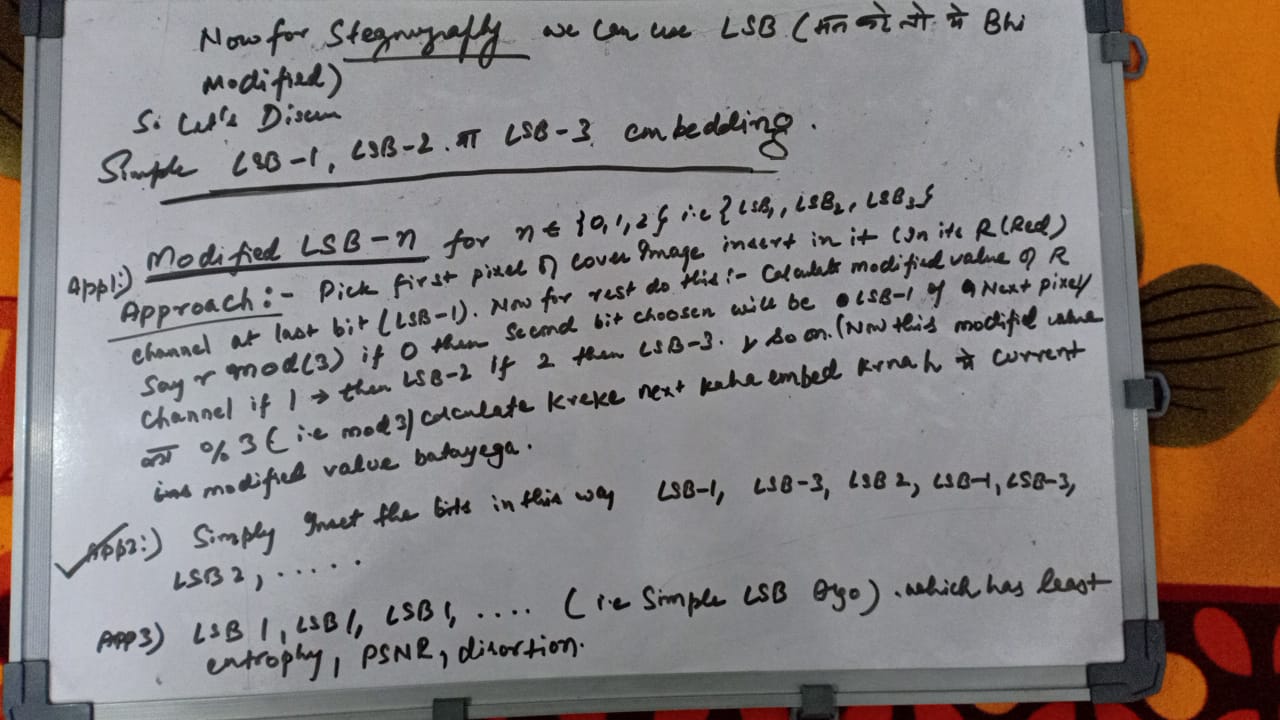 Now for Stegnography we can use LSB ( मन करे तो ये Bhi
Modified)
So Let's Discuss
Simple LSB-1, LSB-2. या LSB-3 embedding.
App1:) Modified LSB-n for n ∈ {0,1,2} i.e {LSB1, LSB2, LSB3}
Approach:- Pick first pixel of cover Image insert in it (In its R (Red)
channel at last bit (LSB-1). Now for rest do this:- Calculate modified value of R
say r mod(3) if 0 then second bit choosen will be LSB-1 of Next pixel
channel if 1 → then LSB-2 if 2 then LSB-3. & so on. (Now this modified value
का % 3 ( i.e mod 3) calculate kreke next kaha embed krna h current
modified value batayega.
App2:) Simply Insert the bits in this way LSB-1, LSB-3, LSB 2, LSB-1, LSB-3,
LSB 2, .....
APP3) LSB 1, LSB 1, LSB 1, .... ( i.e Simple LSB Algo). which has least
entrophy, PSNR, disortion.